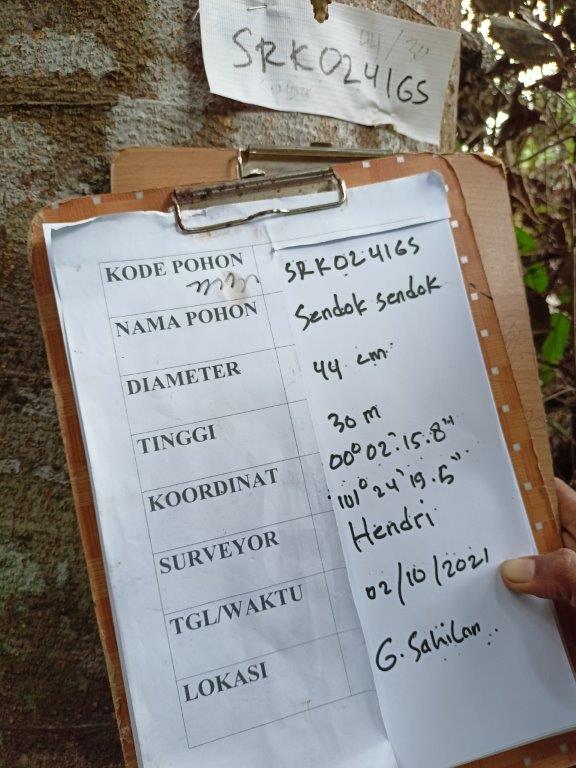 SRK0241GS
KODE POHON SRK0241GS
NAMA POHON Sendok sendok
DIAMETER 44 cm
TINGGI 30 m
KOORDINAT 00° 02' 15.8"
101° 24' 19.5"
SURVEYOR Hendri
TGL/WAKTU 02/10/2021
LOKASI G. Sahilan